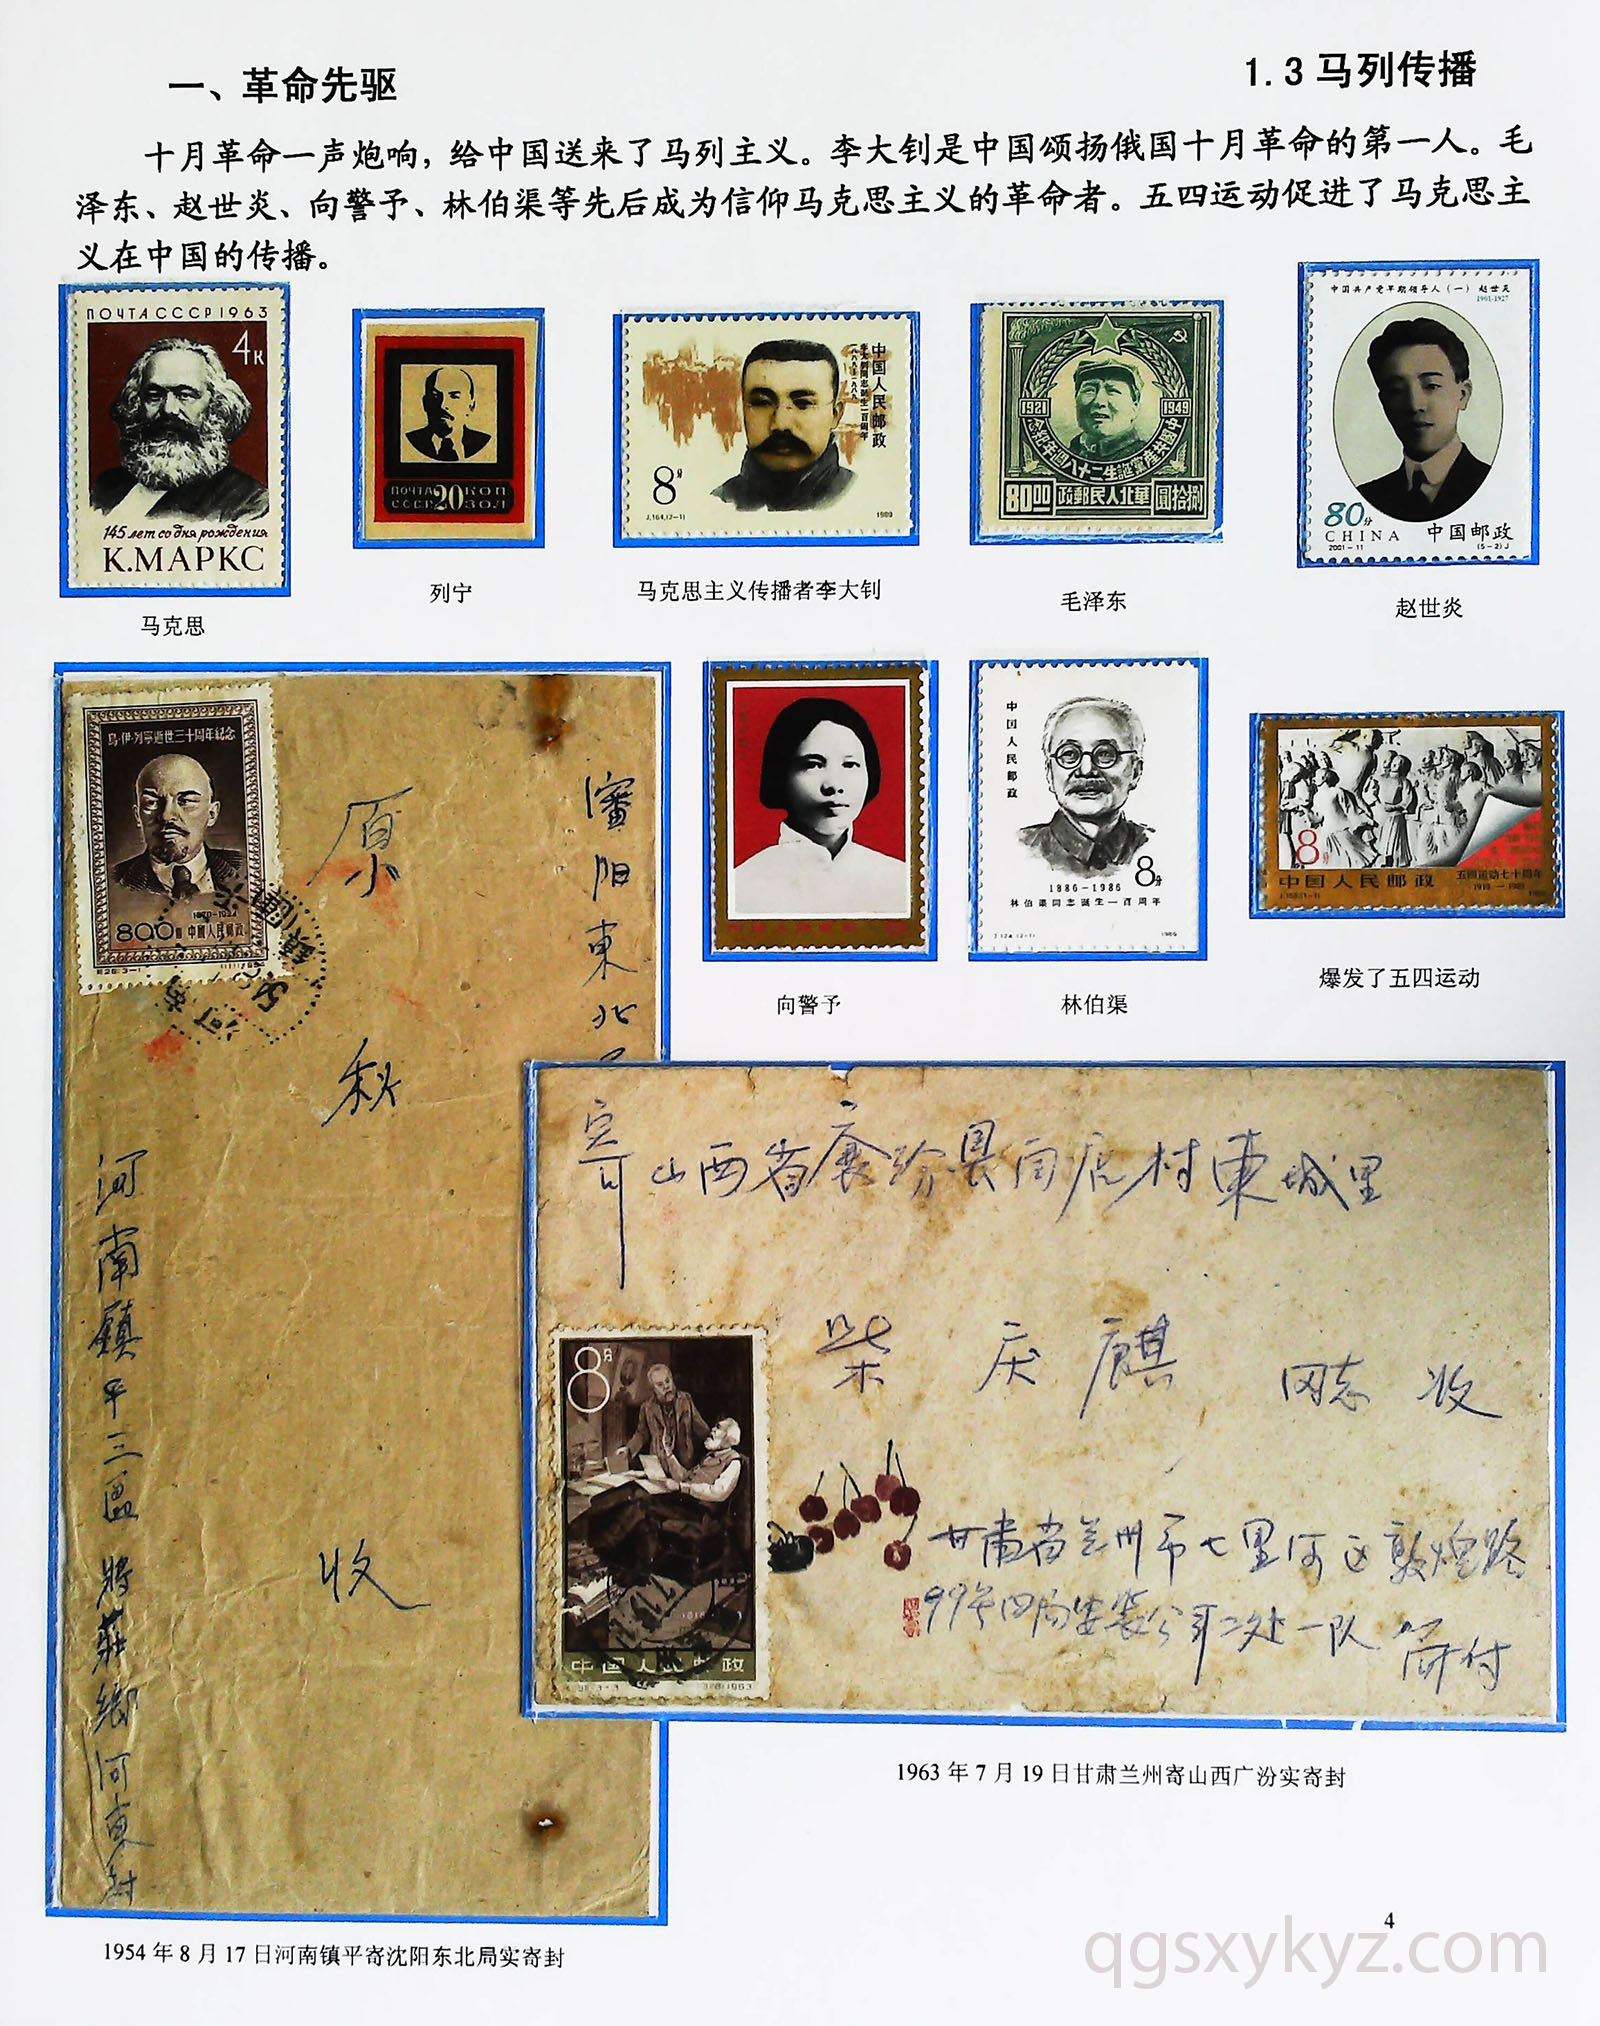 一、革命先驱
1.3 马列传播
十月革命一声炮响，给中国送来了马列主义。李大钊是中国颂扬俄国十月革命的第一人。毛
泽东、赵世炎、向警予、林伯渠等先后成为信仰马克思主义的革命者。五四运动促进了马克思主
义在中国的传播。
ПОЧТА СССР 1963
4к
145 лет со дня рождения
К.МАРКС
马克思
ПОЧТА 20 КОП
СССР ЗОЛ
列宁
中国人民邮政
李大钊同志诞生一百周年
一八八九—一九八九
8分
J.164.(2-1)
1989
马克思主义传播者李大钊
1921
1949
中國共產黨誕生二十八週年紀念
8000
華北人民郵政
捌拾圓
毛泽东
中国共产党早期领导人（一） 赵世炎
1901-1927
80分
CHINA
中国邮政
2001-11
(5-2)J
赵世炎
乌·伊·列寧逝世三十周年紀念
1870-1924
800圓 中國人民郵政
瀋阳東北局
原
秋
收
河南鎮平三區
蔣莊鄉河東封
1954 年 8 月 17 日河南镇平寄沈阳东北局实寄封
向警予
中国人民邮政
8分
1886-1986
林伯渠同志诞生一百周年
J.124.(2-1)
1986
林伯渠
8分
五四运动七十周年
1919-1989
中国人民邮政
爆发了五四运动
寄山西省襄汾县闫店村東城里
柴庆麒 同志 收
甘肃省兰州市七里河区敦煌路
99号四局安装公司二处一队
8分
中国人民邮政
1963 年 7 月 19 日甘肃兰州寄山西广汾实寄封
4
qgsxykyz.com